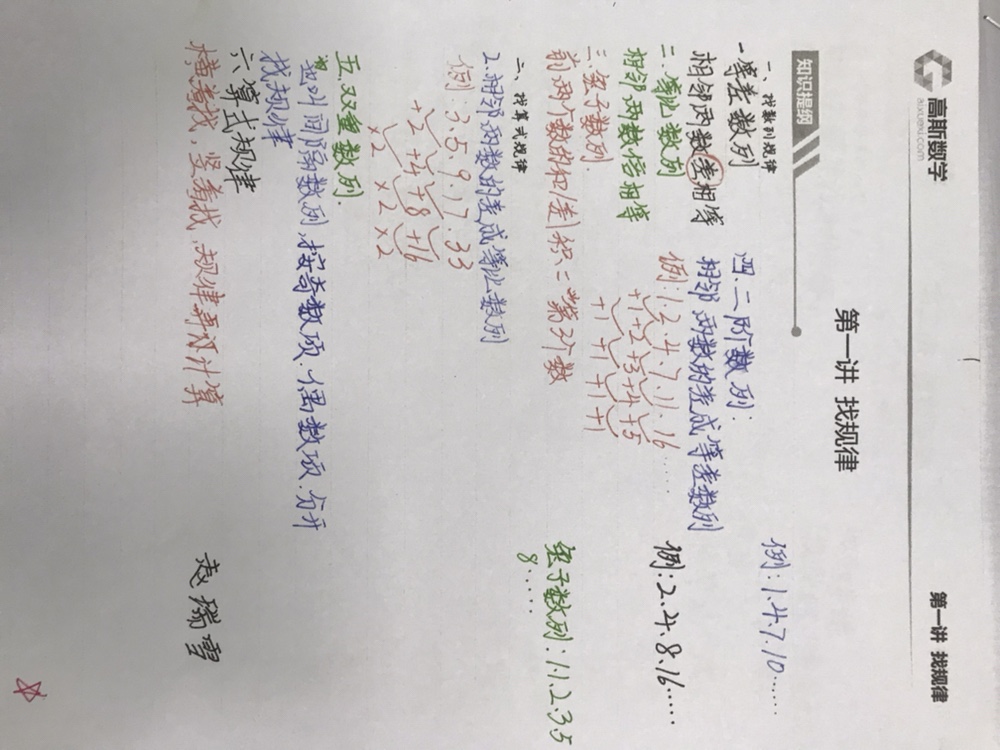 高斯数学
aixuexi.com
第一讲 找规律
第一讲 找规律
知识提纲
一、找数列规律
一 等差数列
相邻两数差相等
例:1.4.7.10……
二 等比数列
相邻两数倍相等
例:2.4.8.16……
三.兔子数列
前两个数的和/差/积=第3个数
兔子数列:1.1.2.3.5
8.……
四.二阶数列:
相邻两数的差成等差数列
例:1.2.4.7.11.16……
+1+2+3+4+5
+1 +1 +1 +1
二、找算式规律
2.相邻两数的差成等比数列
例:3.5.9.17.33
+2+4+8+16
×2 ×2 ×2
五.双重数列.
也叫间隔数列,按奇数项.偶数项.分开
找规律
六、算式规律
横着找,竖着找,规律再计算
赵瑞雪